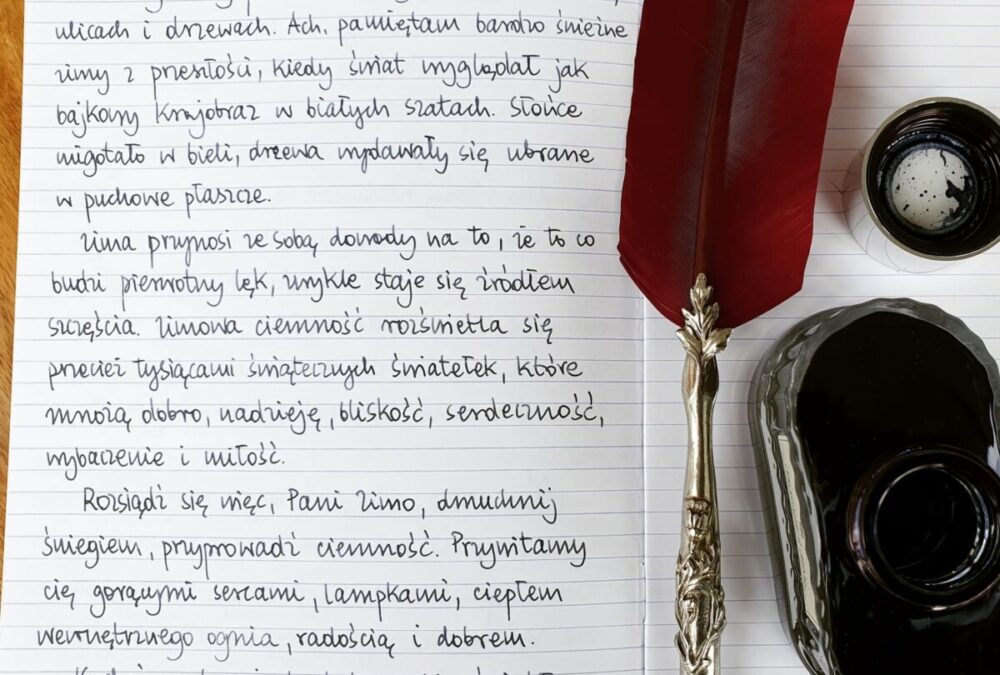 ulicach i drzewach. Ach, pamiętam bardzo śnieżne
zimy z przeszłości, kiedy świat wyglądał jak
bajkowy krajobraz w białych szatach. Słońce
migotało w bieli, drzewa wydawały się ubrane
w puchowe płaszcze.
Zima przynosi ze sobą dowody na to, że to co
budzi pierwotny lęk, zwykle staje się źródłem
szczęścia. Zimowa ciemność rozświetla się
przecież tysiącami świątecznych światełek, które
mnożą dobro, nadzieję, bliskość, serdeczność,
wybaczenie i miłość.
Rozsiądź się więc, Pani Zimo, dmuchnij
śniegiem, przyprowadź ciemność. Przywitamy
cię gorącymi sercami, lampkami, ciepłem
wewnętrznego ognia, radością i dobrem.